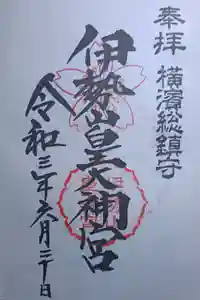 奉拝 横濱総鎮守
伊勢山皇大神宮
令和三年六月三十日